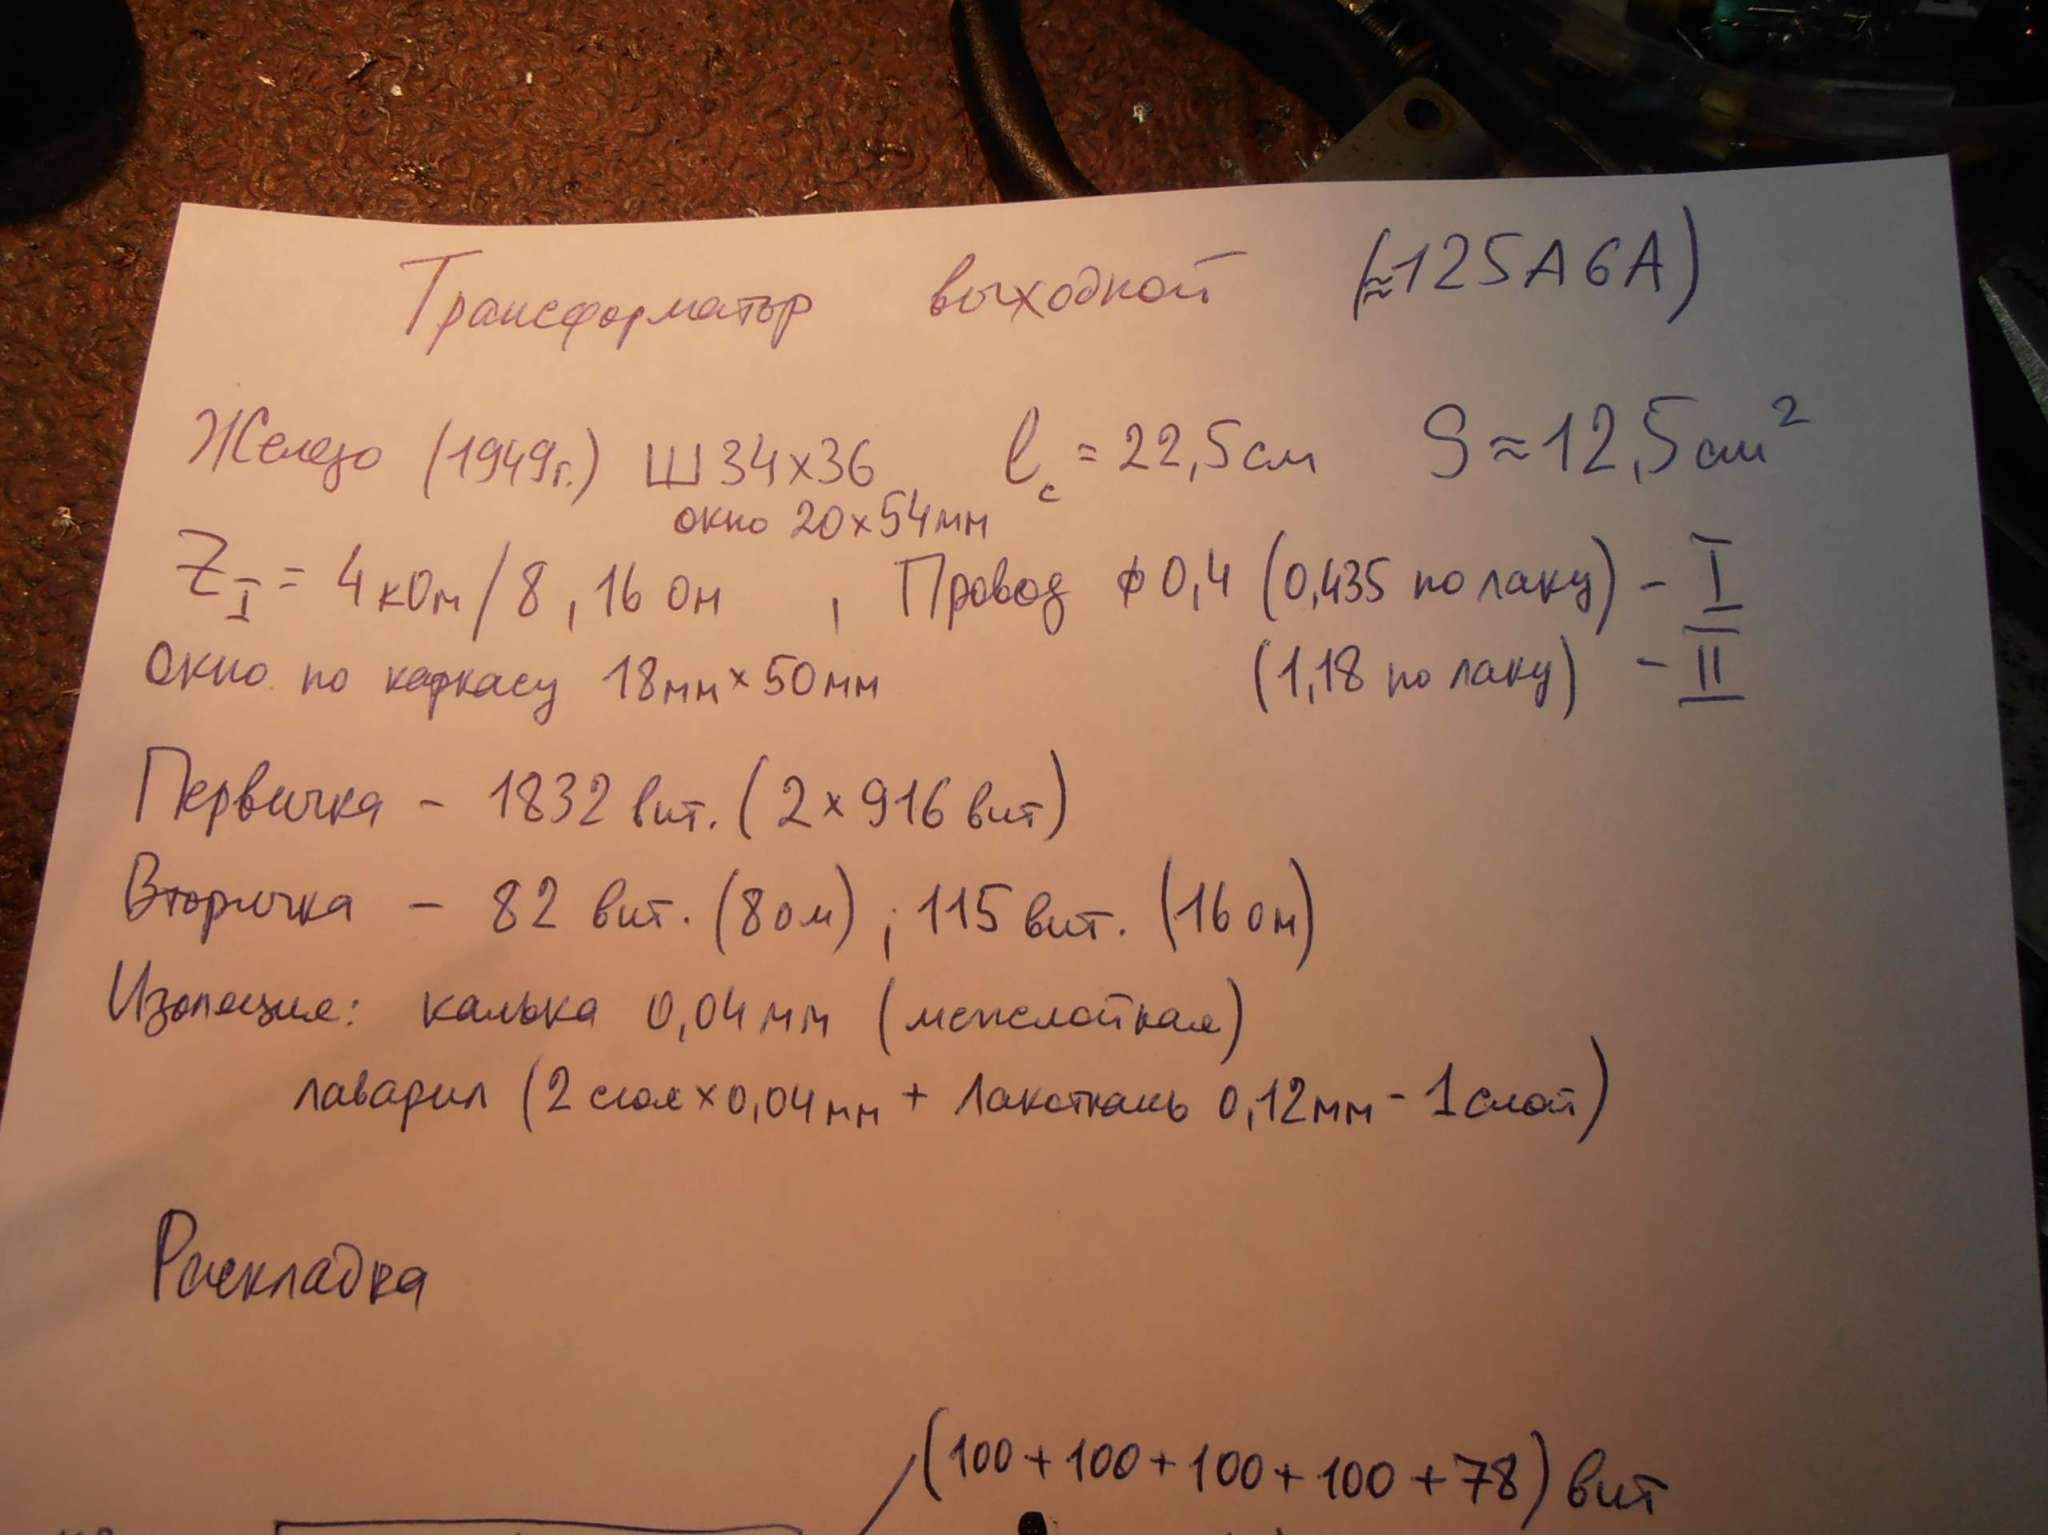 Трансформатор выходной (≈125А6А)
Железо (1949г.) Ш34х36 lc = 22,5см S≈12,5см²
окно 20х54мм
ZI = 4кОм/8, 16 Ом , Провод ϕ0,4 (0,435 по лаку) - I
окно по каркасу 18мм х 50мм (1,18 по лаку) - II
Первичка - 1832 вит. (2х916 вит)
Вторичка - 82 вит. (8ом); 115 вит. (16 ом)
Изоляция: калька 0,04мм (межслойная)
(2 слоя х 0,04мм + Лакоткань 0,12мм - 1слой)
Раскладка
(100+100+100+100+78) вит